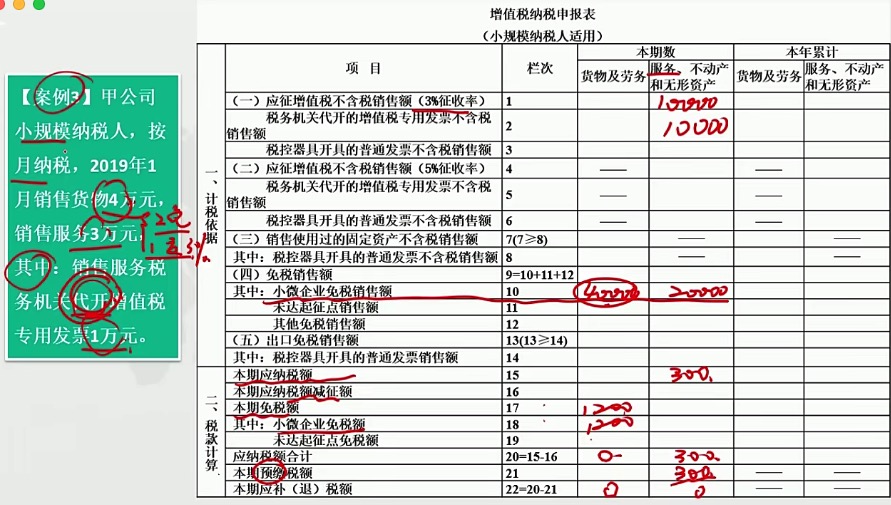 增值税纳税申报表
（小规模纳税人适用）
【案例3】甲公司
小规模纳税人，按
月纳税，2019年1
月销售货物4万元，
销售服务3万元，
其中：销售服务税
务机关代开增值税
专用发票1万元。
项 目 栏次 本期数 本年累计
货物及劳务 服务、不动产和无形资产 货物及劳务 服务、不动产和无形资产
一、计税依据
（一）应征增值税不含税销售额（3%征收率） 1 10000
税务机关代开的增值税专用发票不含税销售额 2 10000
税控器具开具的普通发票不含税销售额 3
（二）应征增值税不含税销售额（5%征收率） 4 —— ——
税务机关代开的增值税专用发票不含税销售额 5 —— ——
税控器具开具的普通发票不含税销售额 6 —— ——
（三）销售使用过的固定资产不含税销售额 7(7≥8) —— ——
其中：税控器具开具的普通发票不含税销售额 8 —— ——
（四）免税销售额 9=10+11+12
其中：小微企业免税销售额 10 40000 20000
未达起征点销售额 11
其他免税销售额 12
（五）出口免税销售额 13(13≥14)
其中：税控器具开具的普通发票销售额 14
二、税款计算
本期应纳税额 15 300
本期应纳税额减征额 16
本期免税额 17 1200
其中：小微企业免税额 18 1200
未达起征点免税额 19
应纳税额合计 20=15-16 0 300
本期预缴税额 21 300 —— ——
本期应补（退）税额 22=20-21 0 0 —— ——